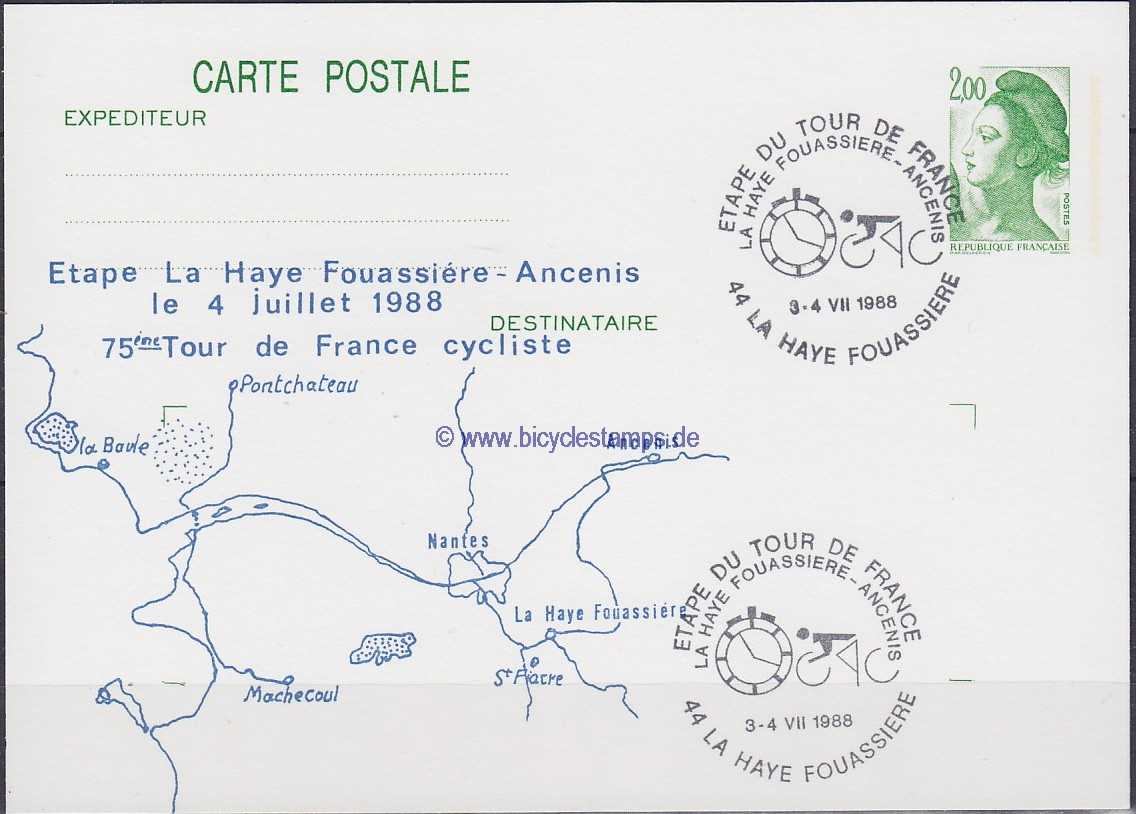 CARTE POSTALE
EXPEDITEUR
2,00
POSTES
REPUBLIQUE FRANÇAISE
ETAPE DU TOUR DE FRANCE
LA HAYE FOUASSIERE-ANCENIS
3-4 VII 1988
44 LA HAYE FOUASSIERE
Etape La Haye Fouassiére-Ancenis
le 4 juillet 1988
DESTINATAIRE
75ème Tour de France cycliste
Pontchateau
© www.bicyclestamps.de
la Baule
Ancenis
Nantes
La Haye Fouassiére
St Fiacre
Machecoul
ETAPE DU TOUR DE FRANCE
LA HAYE FOUASSIERE-ANCENIS
3-4 VII 1988
44 LA HAYE FOUASSIERE